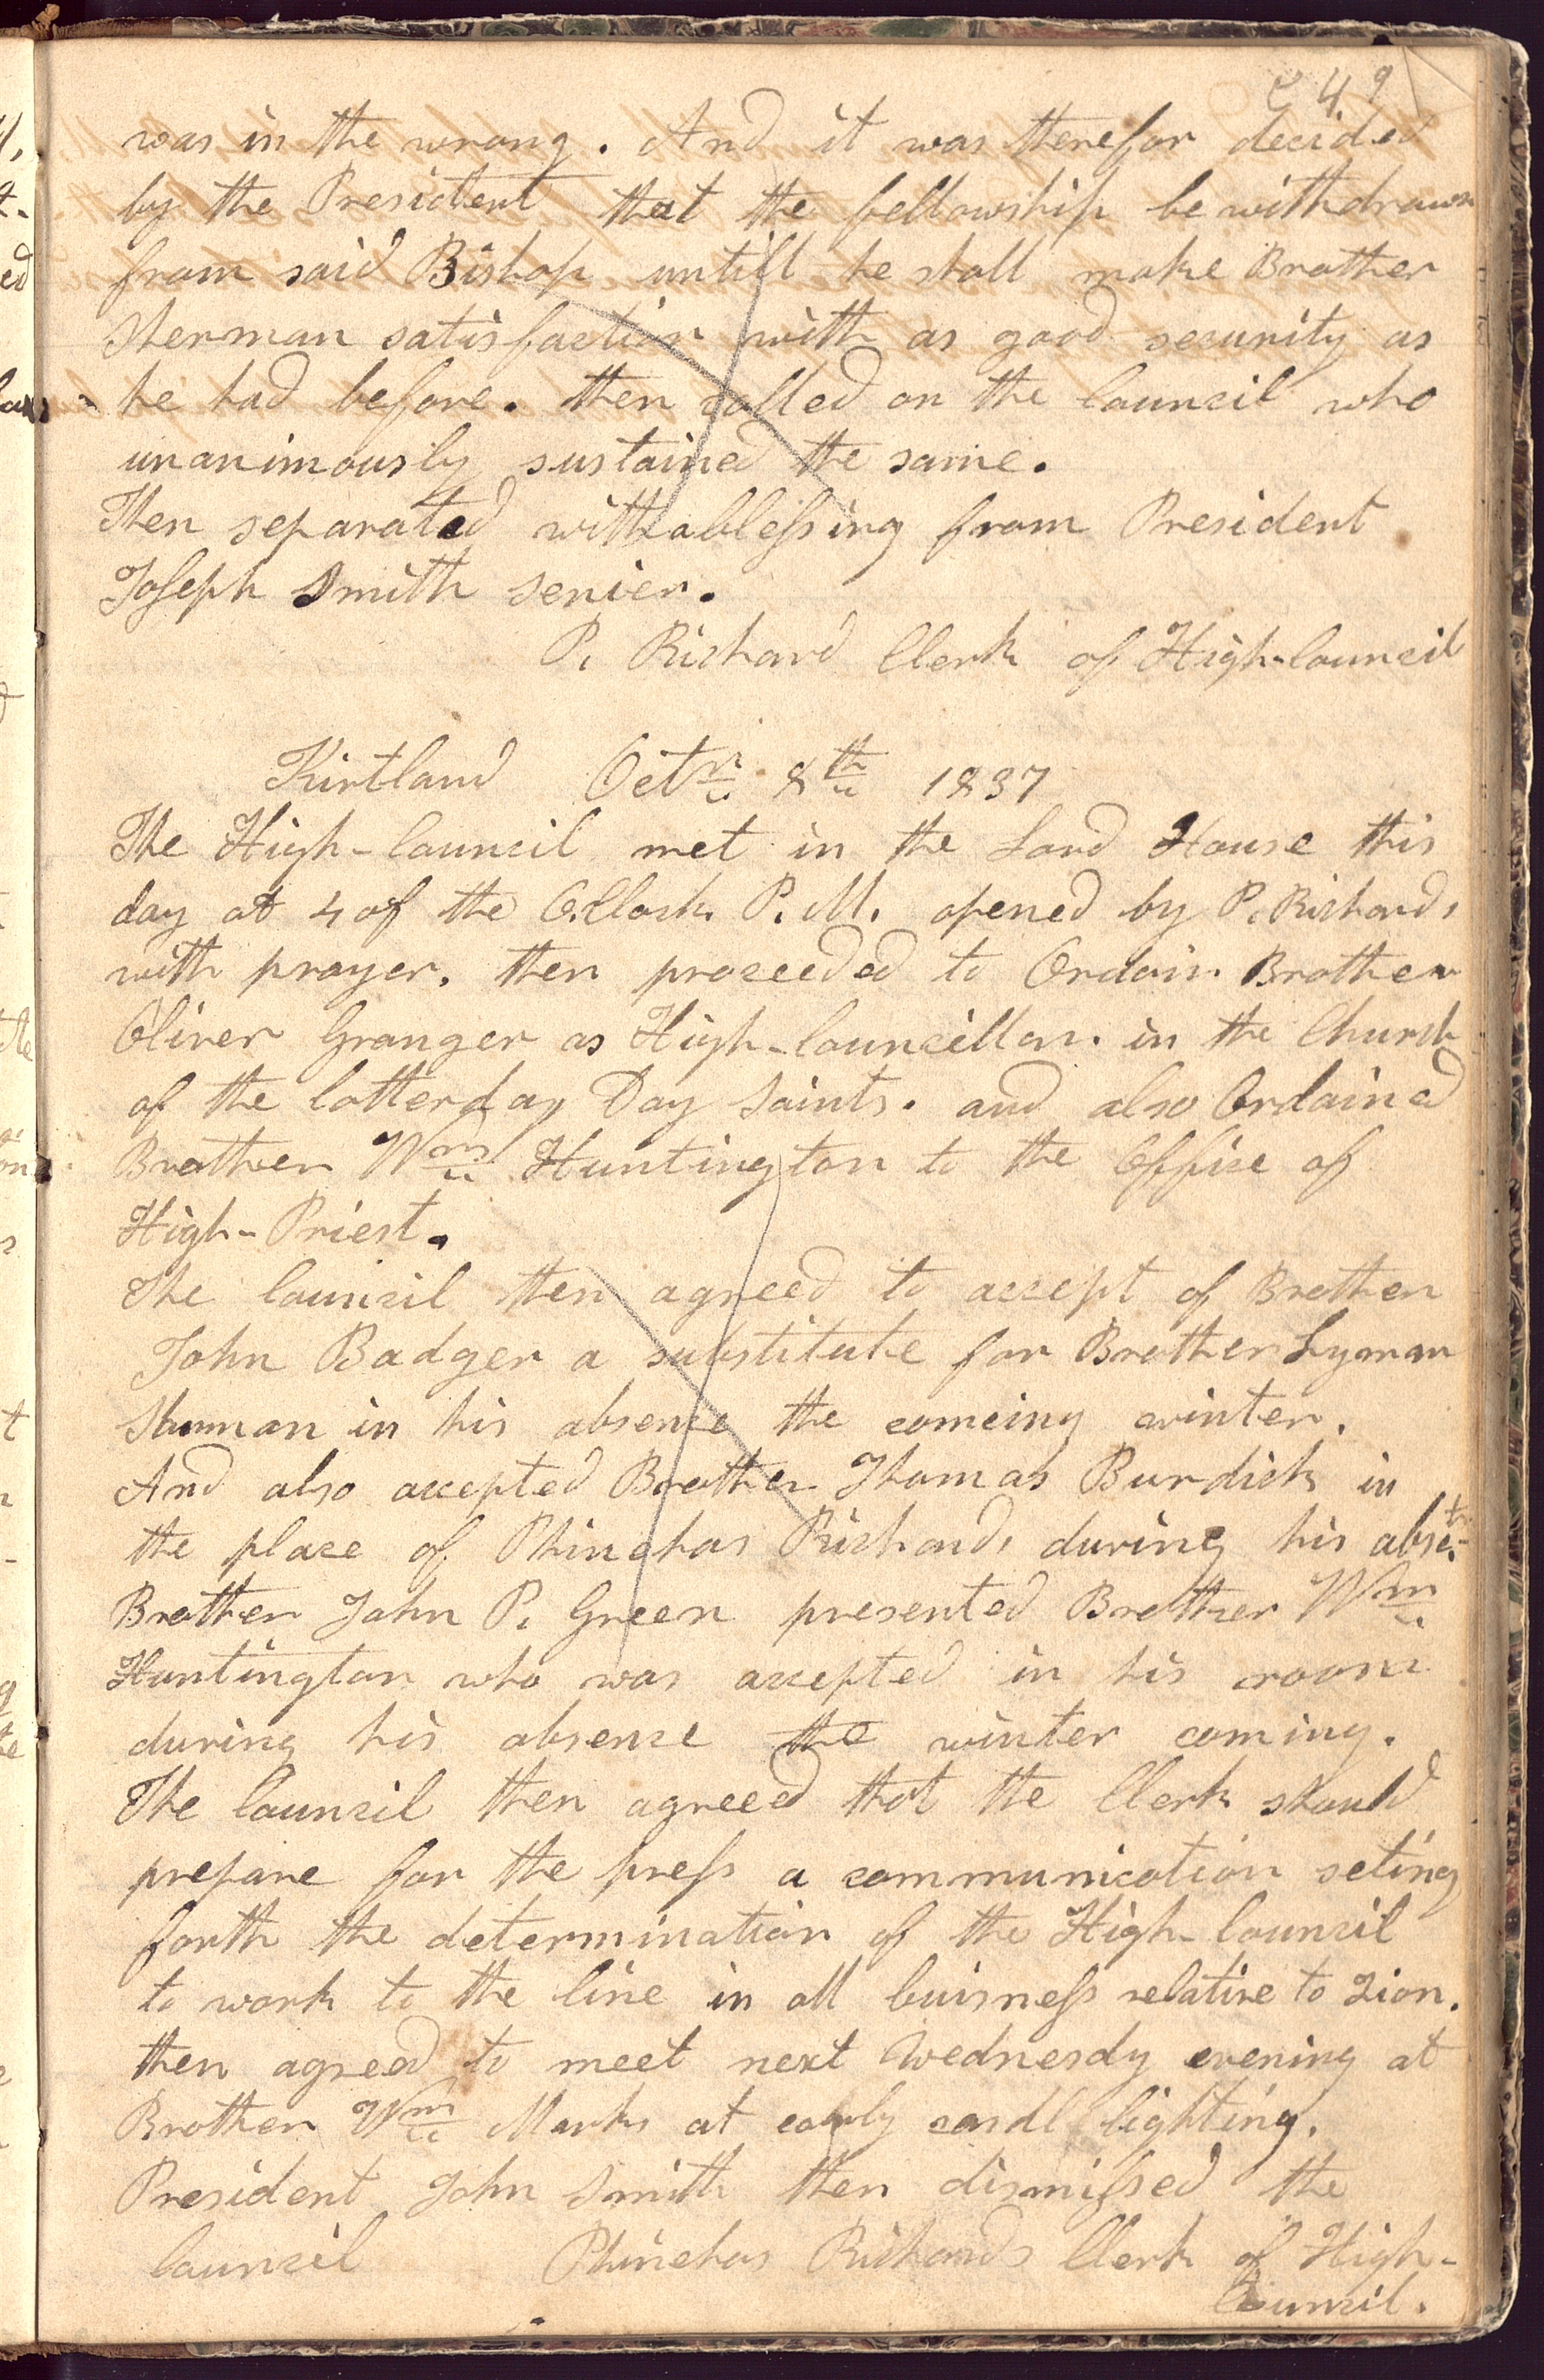 249
was in the wrong. And it was therefor decided
by the President that the fellowship be withdrawn
from said Bishop untill he shall make Brother
Sherman satisfaction with as good security as
he had before. then called on the Council who
unanimously sustained the same.
Then separated with a blessing from President
Joseph Smith senier.
P. Richard Clerk of High-Council
Kirtland Octr. 8th 1837
The High-Council met in the Lord House this
day at 4 of the O.Clock P.M. opened by P. Richards
with prayer. then proceeded to Ordain Brother
Oliver Granger as High-Councillor. in the Church
of the latterday Day Saints. and also Ordained
Brother Wm Huntington to the Office of
High-Priest.
The Council then agreed to accept of Brother
John Badger a substitute for Brother Lyman
Shumman in his absence the comeing winter.
And also accepted Brother Thomas Burdick in
the place of Phinehas Richards during his abset.
Brother John P. Green presented Brother Wm
Huntington who was accepted in his room
during his absence the winter coming.
The Council then agreeed that the Clerk should
prepare for the press a communication seting
forth the determination of the High-Council
to work to the line in all buisness relative to Zion.
then agreed to meet next Wednesdy evening at
Brother Wm Marks at early candl lighting.
President John Smith then dismissed the
Council Phinehas Richards Clerk of High-
Council.